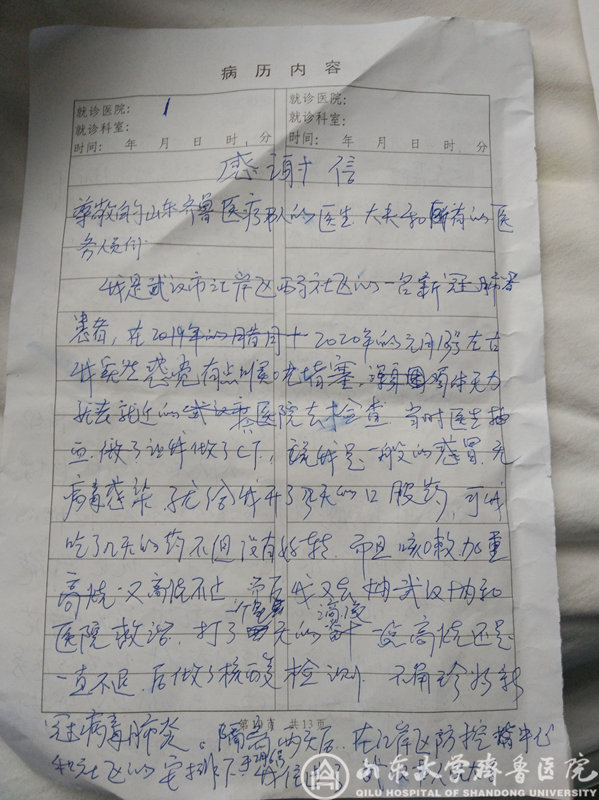 病 历 内 容
就诊医院: 1
就诊科室:
时间: 年 月 日 时, 分
就诊医院:
就诊科室:
时间: 年 月 日 时, 分
感谢信
尊敬的山东齐鲁医疗队的医生 大夫和所有的医
务人员们:
我是武汉市江岸区 社区的一名新冠肺炎
患者,在 2020年的元月13号左右
我突然感觉有点 堵塞, 无力
我去就近的武汉 医院去检查 当时医生抽
血 做了 让我做了CT, 说我是一般的感冒,无
病毒感染 就给我开了几天的口服药,可我
吃了几天的药不但没有好转 而且咳嗽加重
高烧 又高烧不止 我又去 武汉协和
医院救治. 打了 一个星期 天的 高烧还是
一直不退. 后做了核酸检测 不确诊为新
冠病毒肺炎。隔离两天后. 在江岸区防控指挥中心
和社区的安排下 2月6号 我住
第10页 共13页
山东大学齐鲁医院
QILU HOSPITAL OF SHANDONG UNIVERSITY